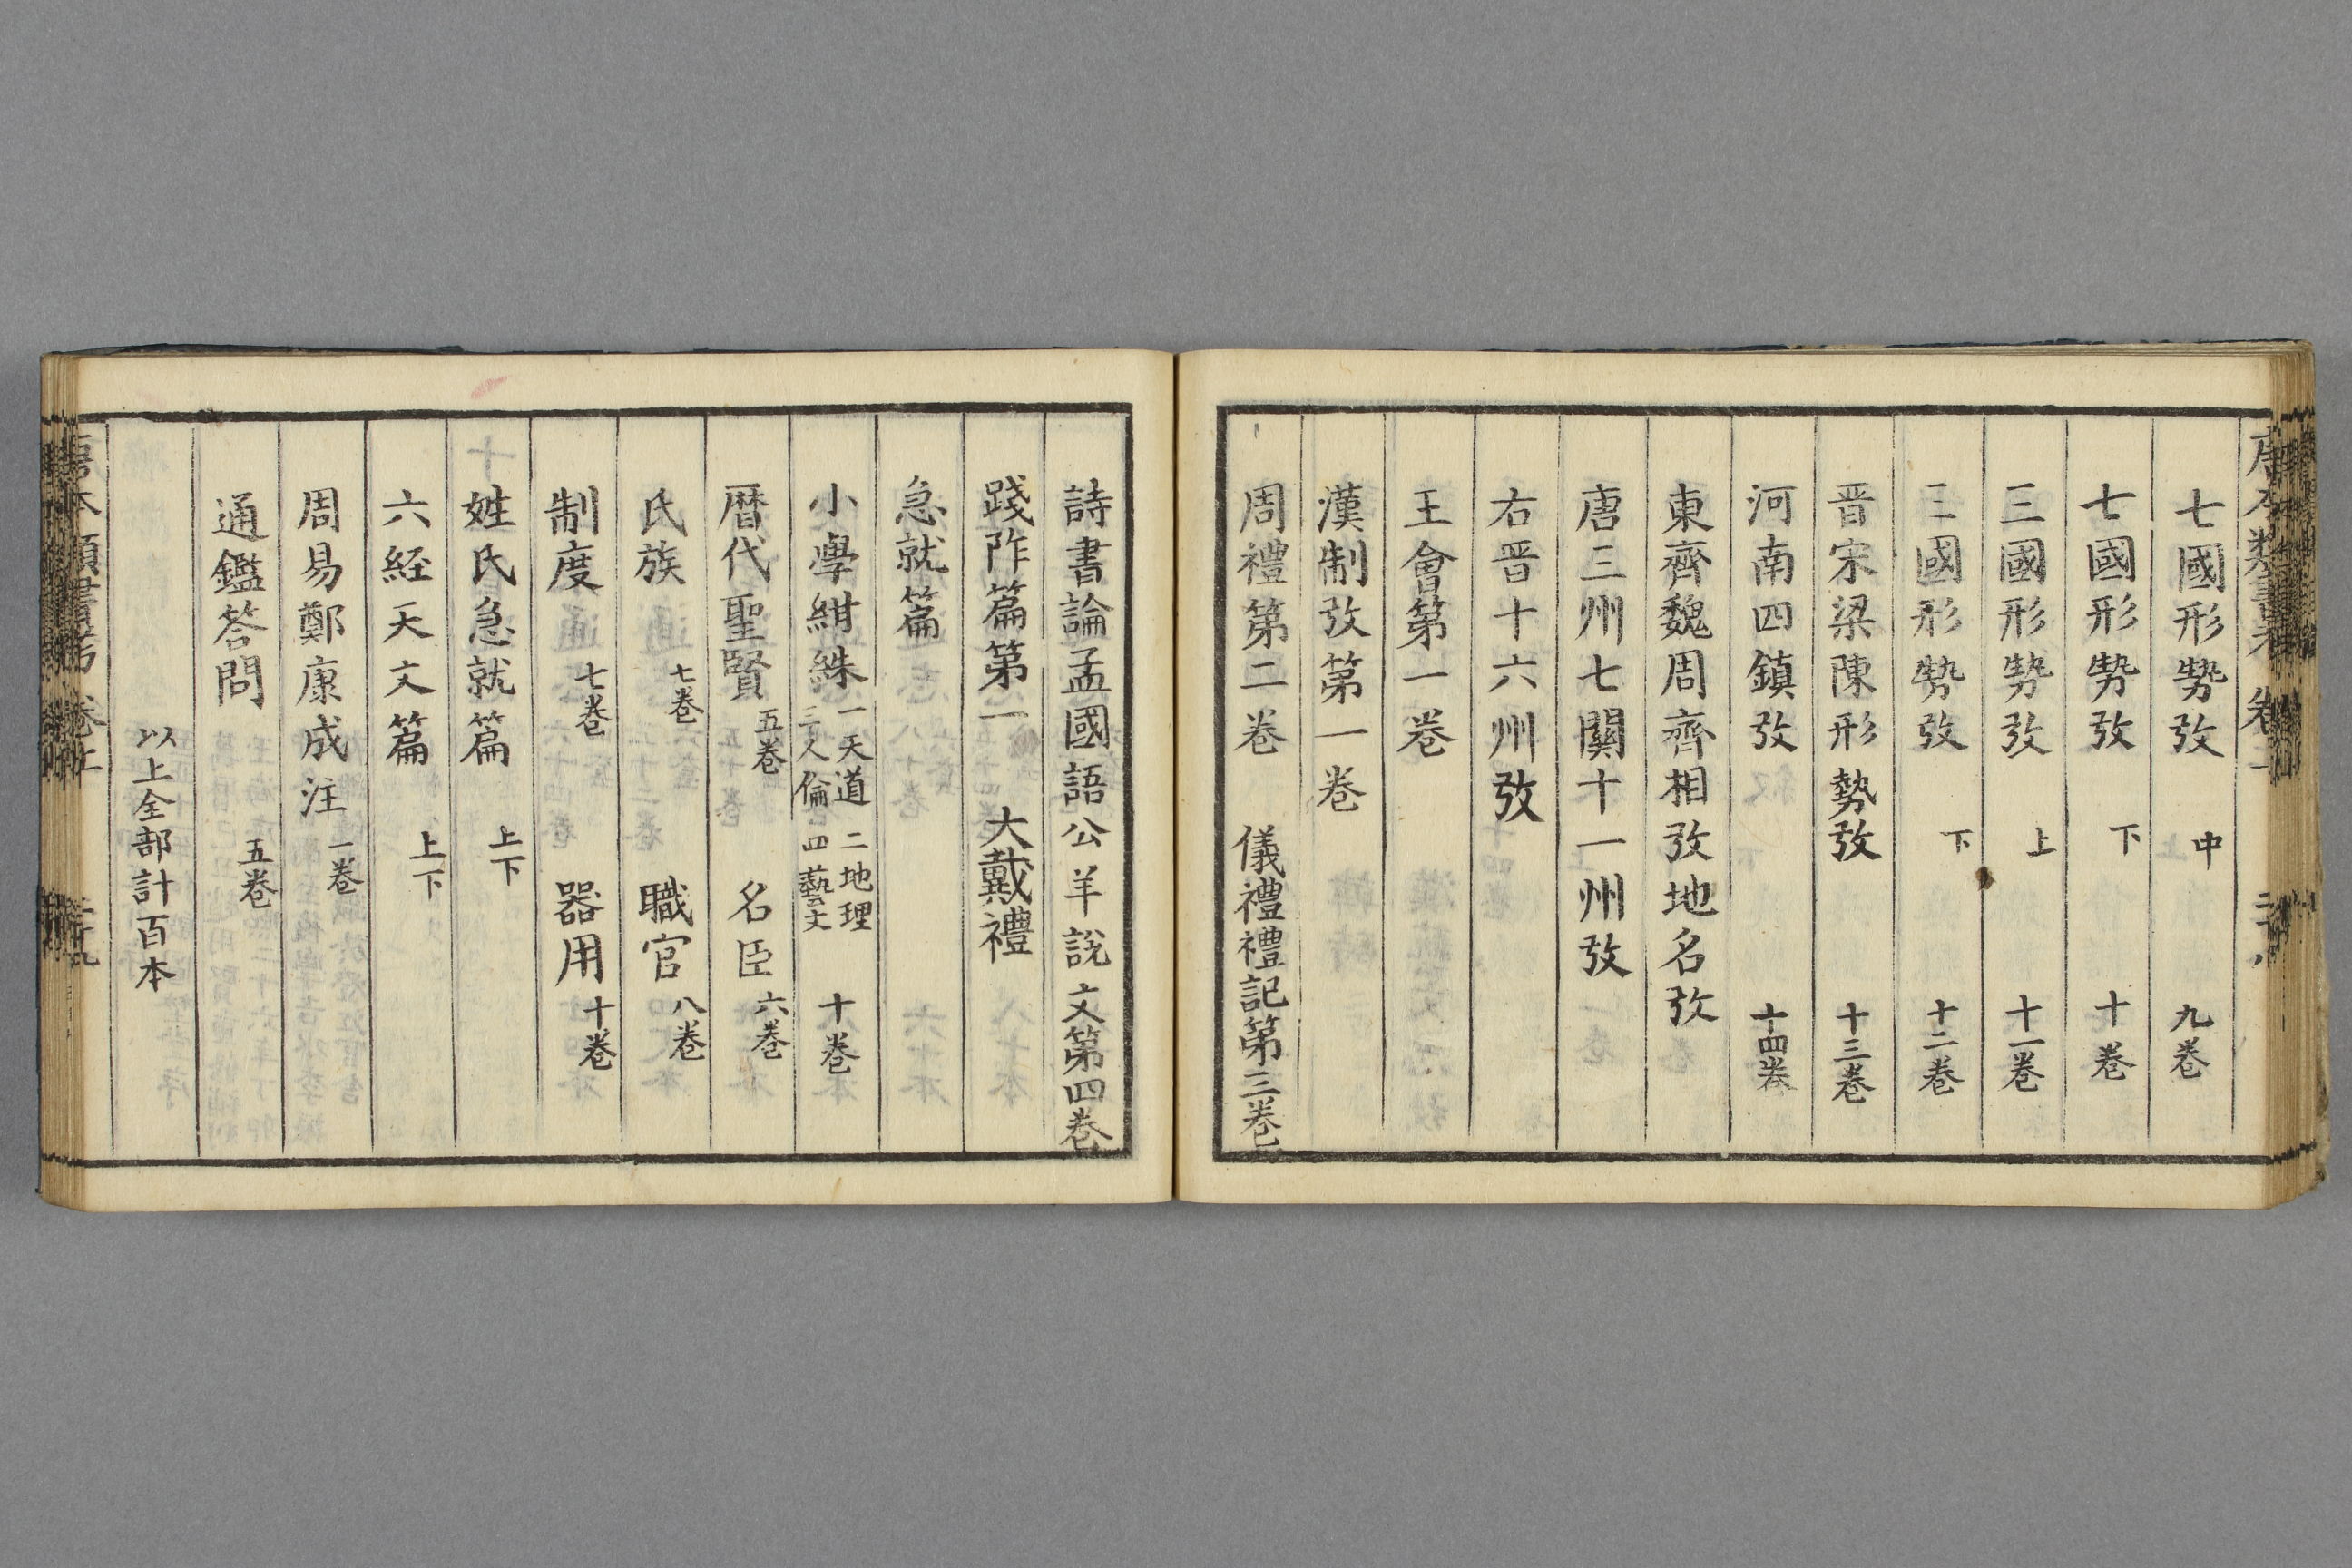 七國形勢攷 中 九卷
七國形勢攷 下 十卷
三國形勢攷 上 十一卷
三國形勢攷 下 十二卷
晋宋梁陳形勢攷 十三卷
河南四鎮攷 十四卷
東齊魏周齊相攷地名攷
唐三州七關十一州攷
右晋十六州攷
王會第一卷
漢制攷第一卷
周禮第二卷 儀禮禮記第三卷
詩書論孟國語公羊説文第四卷
踐阼篇第一 大戴禮
急就篇
小學紺絑 一天道 二地理 三人倫 四藝文 十卷
暦代聖賢 五卷 名臣 六卷
氏族 七卷 職官 八卷
制度 七卷 器用 十卷
姓氏急就篇 上下
六経天文篇 上下
周易鄭康成注 一卷
通鑑答問 五卷
以上全部計百本
唐本類書考 卷上